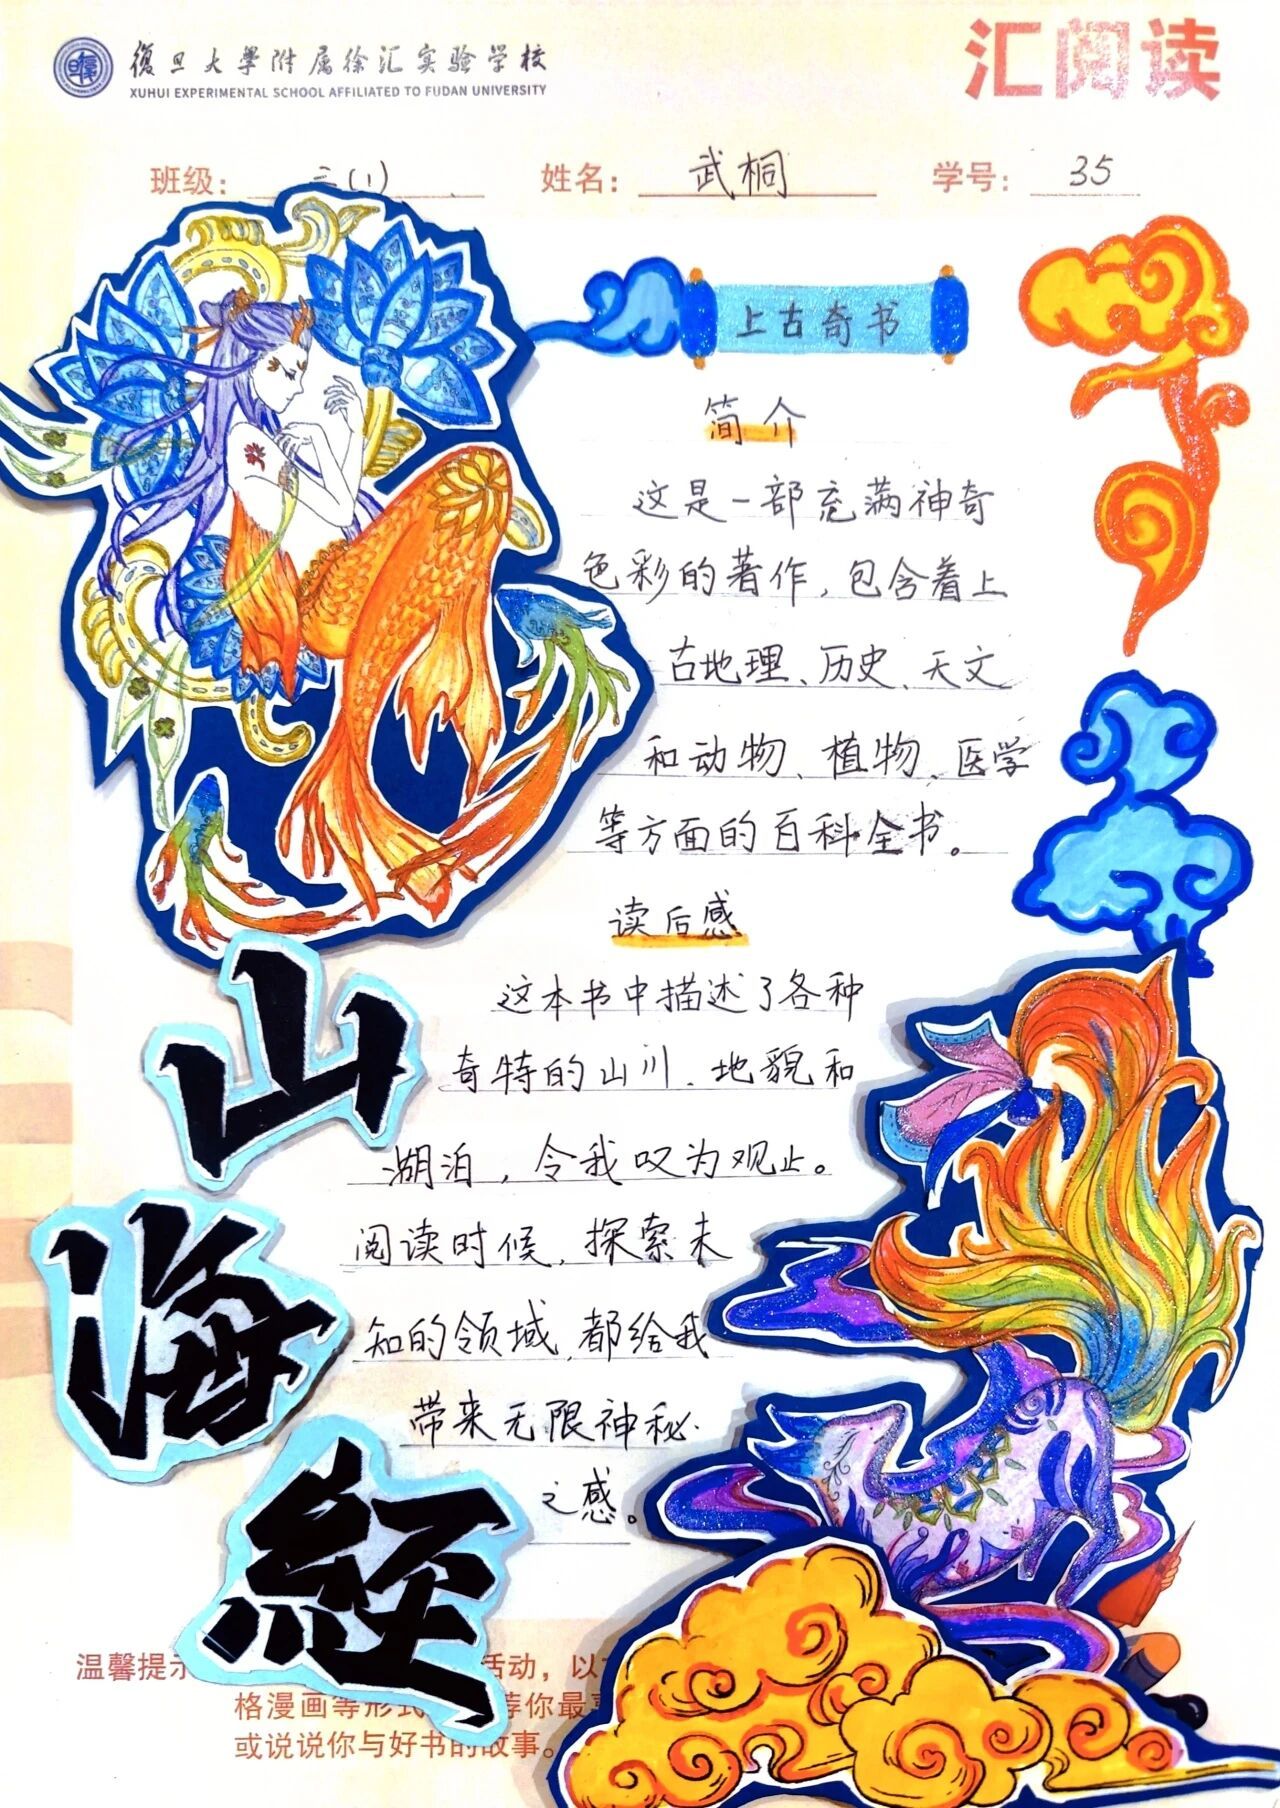 復旦大學附属徐汇实验学校
XUHUI EXPERIMENTAL SCHOOL AFFILIATED TO FUDAN UNIVERSITY
汇阅读
班级: 三(1) 姓名: 武桐 学号: 35
上古奇书
简介
这是一部充满神奇
色彩的著作,包含着上
古地理、历史、天文
和动物、植物、医学
等方面的百科全书。
读后感
这本书中描述了各种
奇特的山川、地貌和
湖泊,令我叹为观止。
阅读时候,探索未
知的领域,都给我
带来无限神秘
之感。
山
海
經
温馨提示 活动,以
格漫画等形式 荐你最喜
或说说你与好书的故事。